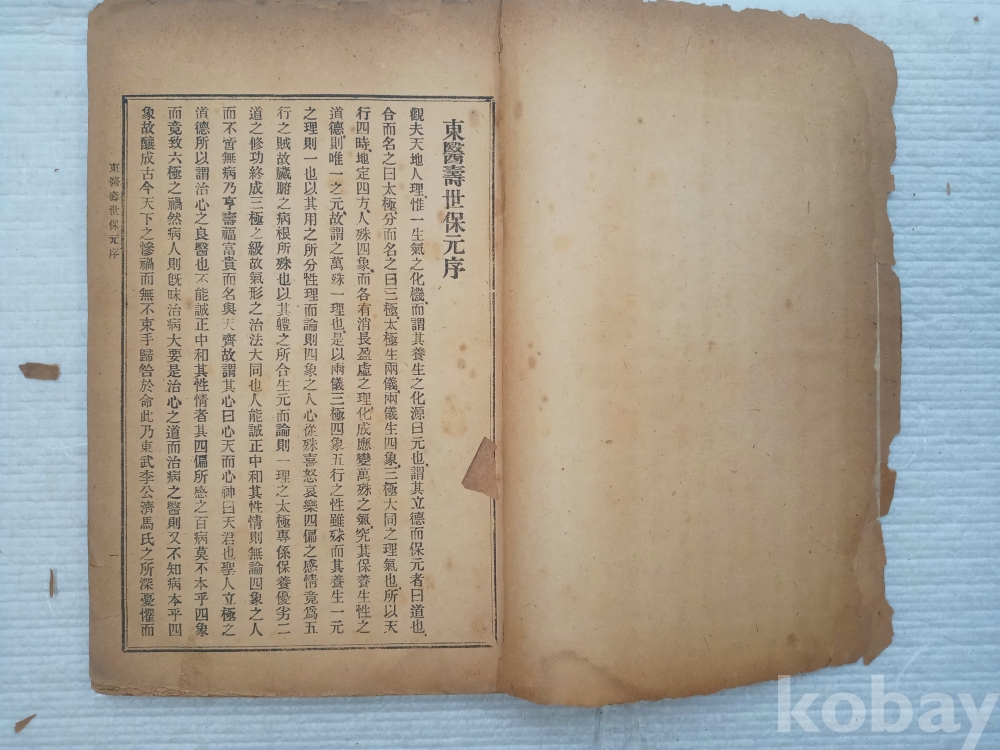 東醫壽世保元序
觀夫天地人理、惟一生氣之化機、而謂其養生之化源曰元也、謂其立德而保元者曰道也、
合而名之曰太極、分而名之曰三極、太極生兩儀、兩儀生四象、三極大同之理氣也、所以天
行四時、地定四方、人殊四象、而各有消長盈虛之理、化成應變萬殊之氣、究其保養生性之
道德、則唯一之元、故謂之萬殊一理也、是以兩儀三極四象五行之性雖殊而其養生一元
之理則一也以其用之所分性理而論則四象之人心從殊喜怒哀樂四偏之感情竟爲五
行之賊故臟腑之病根所殊也以其體之所合生元而論則一理之太極專係保養優劣二
道之修功終成三極之級故氣形之治法大同也人能誠正中和其性情則無論四象之人
而不啻無病乃亨壽福富貴而名與天齊故謂其心曰心天而心神曰天君也聖人立極之
道德所以謂治心之良醫也不能誠正中和其性情者其四偏所感之百病莫不本乎四象
而竟致六極之禍然病人則旣昧治病大要是治心之道而治病之醫則又不知病本乎四
象故釀成古今天下之慘禍而無不束手歸咎於命此乃東武李公濟馬氏之所深憂懼而
東醫壽世保元序
一
kobay